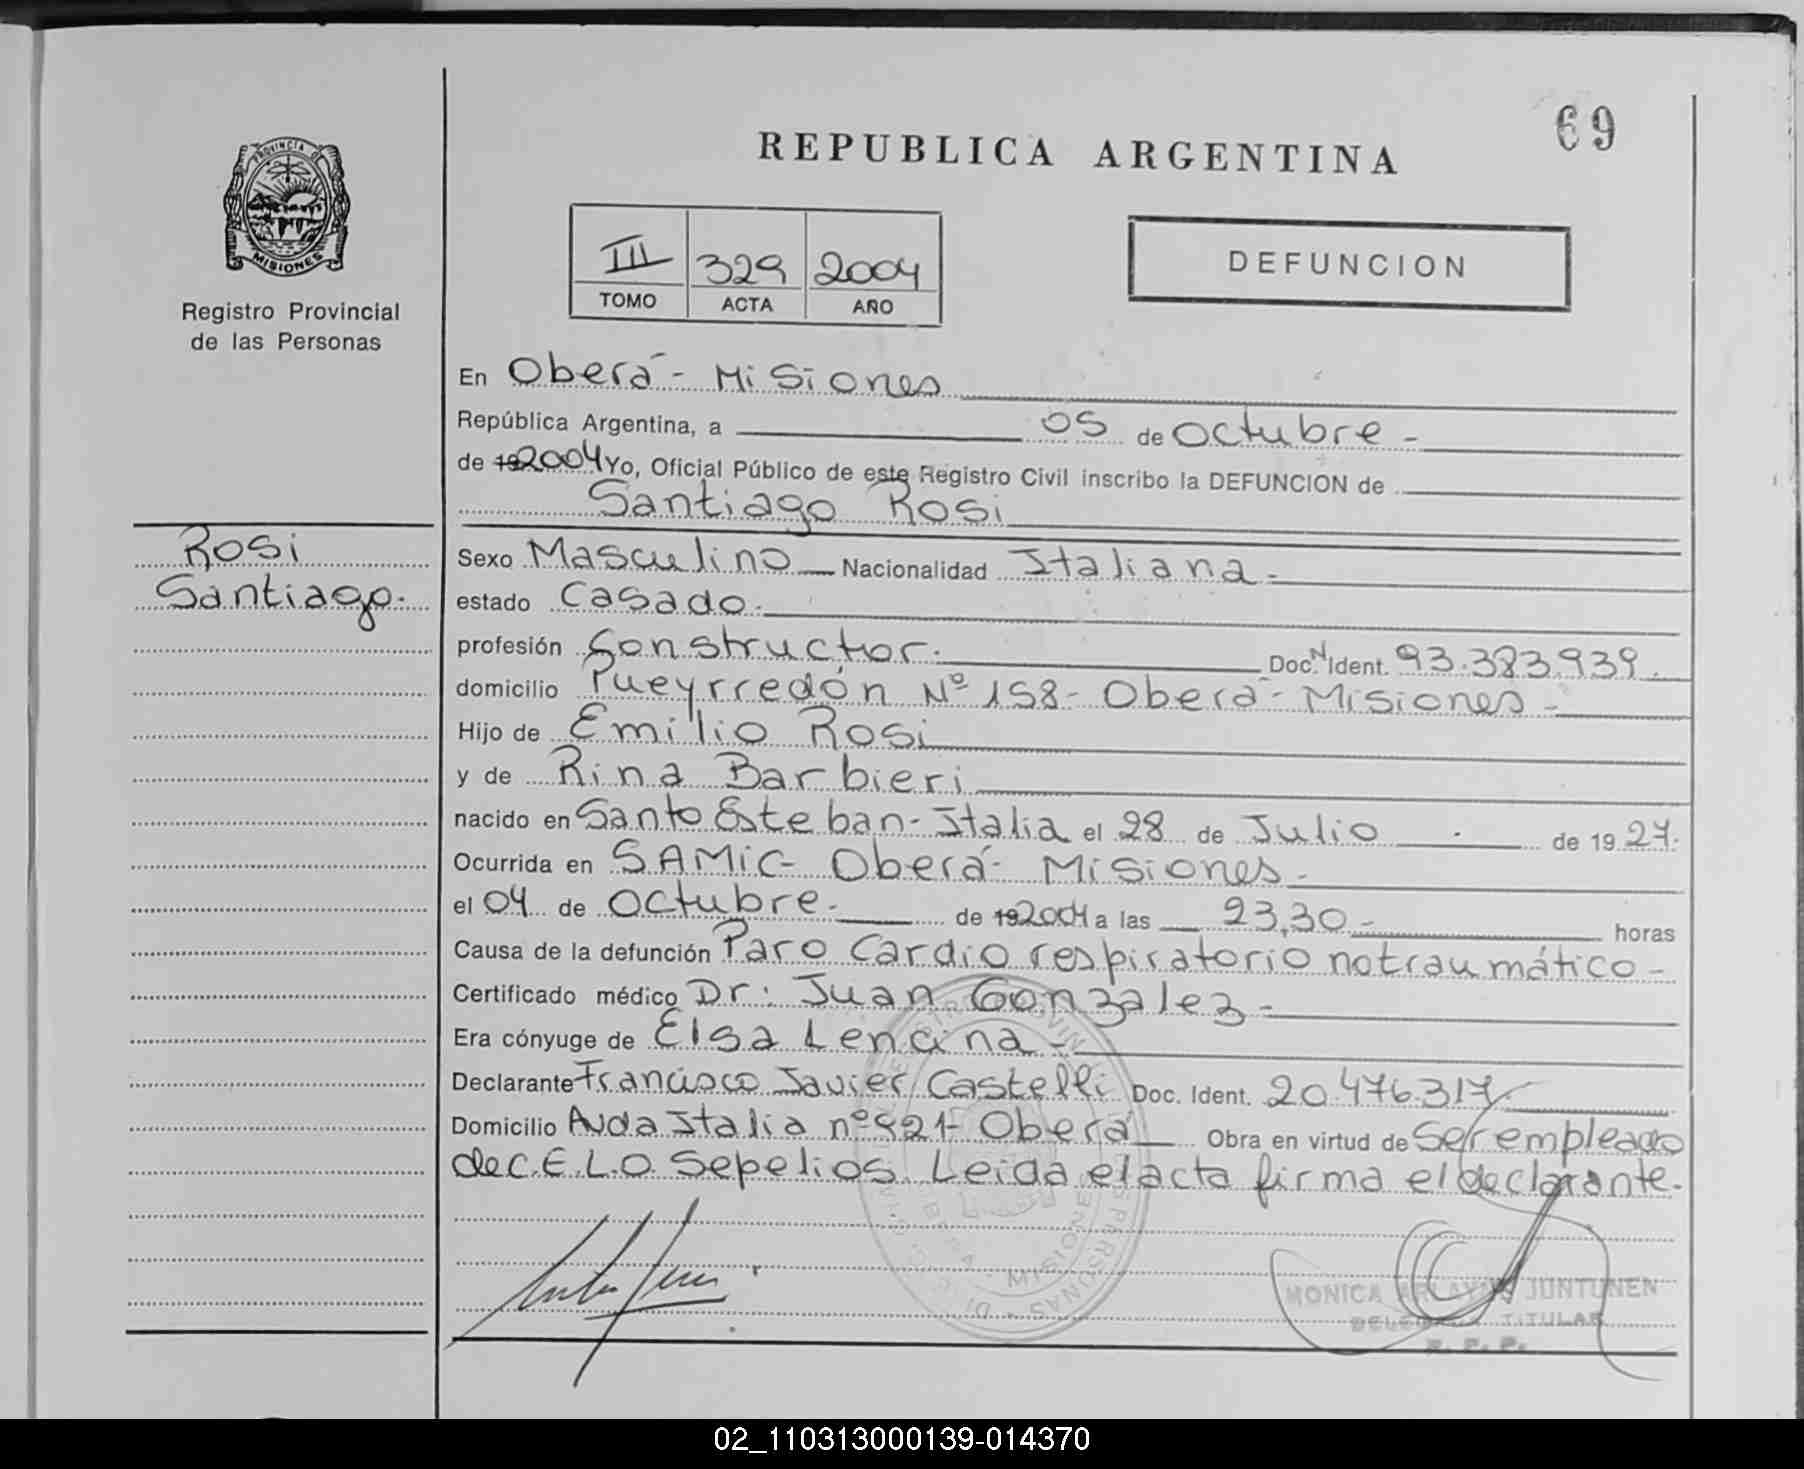 69
REPUBLICA ARGENTINA
PROVINCIA DE
MISIONES
Registro Provincial
de las Personas
III 329 2004
TOMO ACTA AÑO
DEFUNCION
En Oberá - Misiones
República Argentina, a 05 de Octubre -
de 19 2004 Yo, Oficial Público de este Registro Civil inscribo la DEFUNCION de
Santiago Rosi
Rosi
Santiago.
Sexo Masculino Nacionalidad Italiana -
estado Casado.
profesión Constructor. Doc. N Ident. 93.383.939.
domicilio Pueyrredón Nº 158 - Oberá - Misiones -
Hijo de Emilio Rosi
y de Rina Barbieri
nacido en Santo Esteban - Italia el 28 de Julio de 19 27.
Ocurrida en SAMIC - Oberá - Misiones -
el 04 de Octubre - de 19 2004 a las 23,30 - horas
Causa de la defunción Paro Cardio respiratorio no traumático -
Certificado médico Dr: Juan Gonzalez -
Era cónyuge de Elsa Lencina -
Declarante Francisco Javier Castelli Doc. Ident. 20.476.317
Domicilio Avda Italia nº 921 - Oberá Obra en virtud de Ser empleado
de C.E.L.O. Sepelios. Leida el acta firma el declarante.
MISIONES
PERSONAS
MONICA JUNTUNEN
TITULAR
R. P. P.
02_110313000139-014370